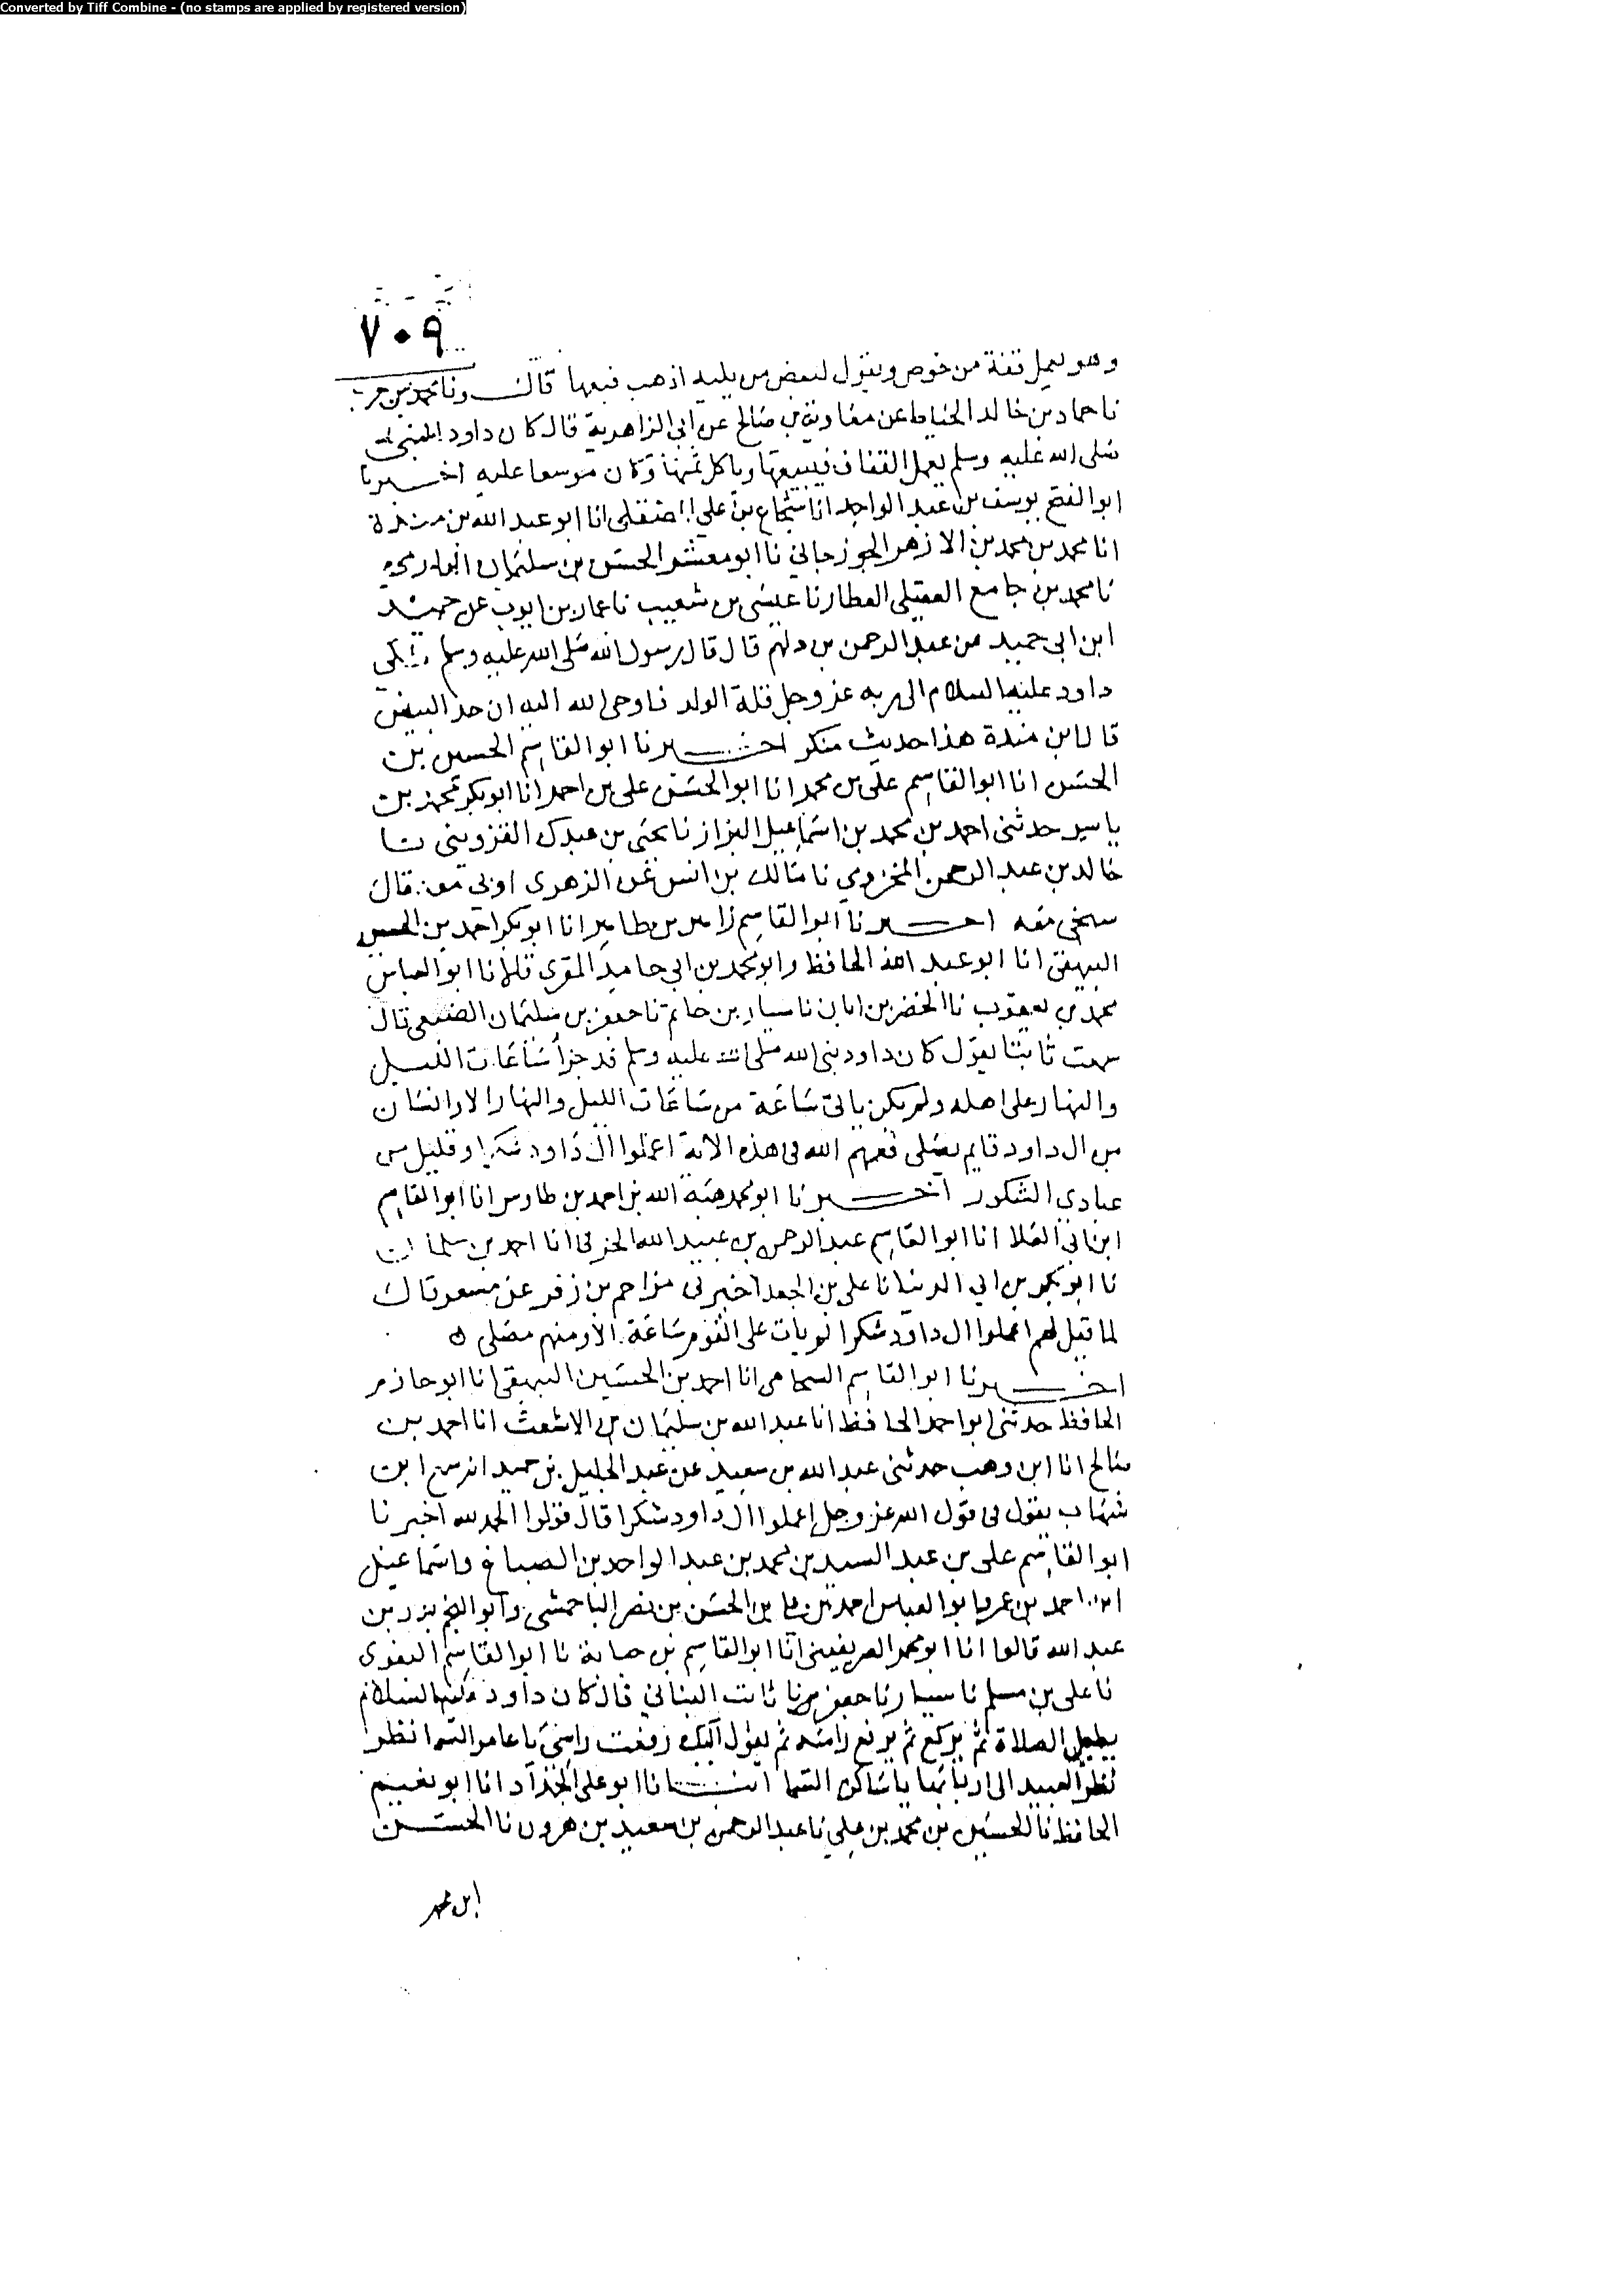 Converted by Tiff Combine - (no stamps are applied by registered version)
٧٠٩
وهو يعمل قفة من خوص ويقول لبعض من يليه اذهب فبعها قال ونا محمد بن
نا حماد بن خالد الخياط عن معاوية بن صالح عن ابي الزاهرية قال كان داود النبي
صلى الله عليه وسلم يعمل القفاف فيبيعها وياكل ثمنها وكان موسعا عليه اخبرنا
ابو الفتح يوسف بن عبد الواحد انا شجاع بن علي المصقلي انا ابو عبد الله بن مندة
انا محمد بن محمد بن الازهر الجوزجاني نا ابو معشر الحسن بن سليمان
نا محمد بن جامع العقيلي العطار نا عيسى بن شعيب نا عمار بن ايوب عن حميد
ابن ابي حميد عن عبد الرحمن بن دلهم قال قال رسول الله صلى الله عليه وسلم شكى
داود عليه السلام الى ربه عز وجل قلة الولد فاوحى الله اليه ان خذ البيض
قال ابن مندة هذا حديث منكر اخبرنا ابو القاسم الحسين بن
الحسن انا ابو القاسم علي بن محمد انا ابو الحسن علي بن احمد انا ابو بكر محمد بن
حدثني احمد بن محمد بن اسماعيل البزاز نا يحيى بن عبدك القزويني نا
خالد بن عبد الرحمن المخزومي نا مالك بن انس عن الزهري اوبي معه قال
سبحي معه اخبرنا ابو القاسم زاهر بن طاهر انا ابو بكر احمد بن الحسين
البيهقي انا ابو عبد الله الحافظ وابو محمد بن ابي حامد المقرى قالا نا ابو العباس
محمد بن يعقوب نا الخضر بن ابان نا سيار بن حاتم نا جعفر بن سليمان الضبعي قال
سمعت ثابتا يقول كان داود نبي الله صلى الله عليه وسلم قد جزأ ساعات الليل
والنهار على اهله ولم يكن ياتي ساعة من ساعات الليل والنهار الا وانسان
من ال داود قايم يصلي فعمهم الله في هذه الاية اعملوا ال داود شكرا وقليل من
عبادي الشكور اخبرنا ابو محمد هبة الله بن احمد بن طاوس انا ابو القاسم
ابن ابي العلا انا ابو القاسم عبد الرحمن بن عبيد الله الحرفي انا احمد بن سلمان
نا ابو بكر بن ابي الدنيا نا علي بن الجعد اخبرني مزاحم بن زفر عن مسعر قال
لما قيل لهم اعملوا ال داود شكرا لم يات على القوم ساعة الا ومنهم مصلي ه
اخبرنا ابو القاسم الشحامي انا احمد بن الحسين البيهقي انا ابو حازم
الحافظ حدثني ابو احمد الحافظ انا عبد الله بن سليمان بن الاشعث انا احمد بن
صالح انا ابن وهب حدثني عبد الله بن سعيد عن عبد الجليل بن حميد انه سمع ابن
شهاب يقول في قول الله عز وجل اعملوا ال داود شكرا قال قولوا الحمد لله اخبرنا
ابو القاسم علي بن عبد السيد بن محمد بن عبد الواحد بن الصباغ واسماعيل
احمد بن عمر وابو العباس احمد بن علي بن الحسن بن نصر الباحمشي وابو النجم بدر بن
عبد الله قالوا انا ابو محمد الصريفيني انا ابو القاسم بن حبابة نا ابو القاسم البغوي
نا علي بن مسلم نا سيار نا جعفر نا ثابت البناني قال كان داود عليه السلام
يطيل الصلاة ثم يركع ثم يرفع راسه ثم يقول اليك رفعت راسي يا عامر السما نظر
نظر العبيد الى اربابها يا ساكن السما انبانا ابو علي الحداد انا ابو نعيم
الحافظ نا الحسين بن محمد بن علي نا عبد الرحمن بن سعيد بن هرون نا الحسن
ابن محمد